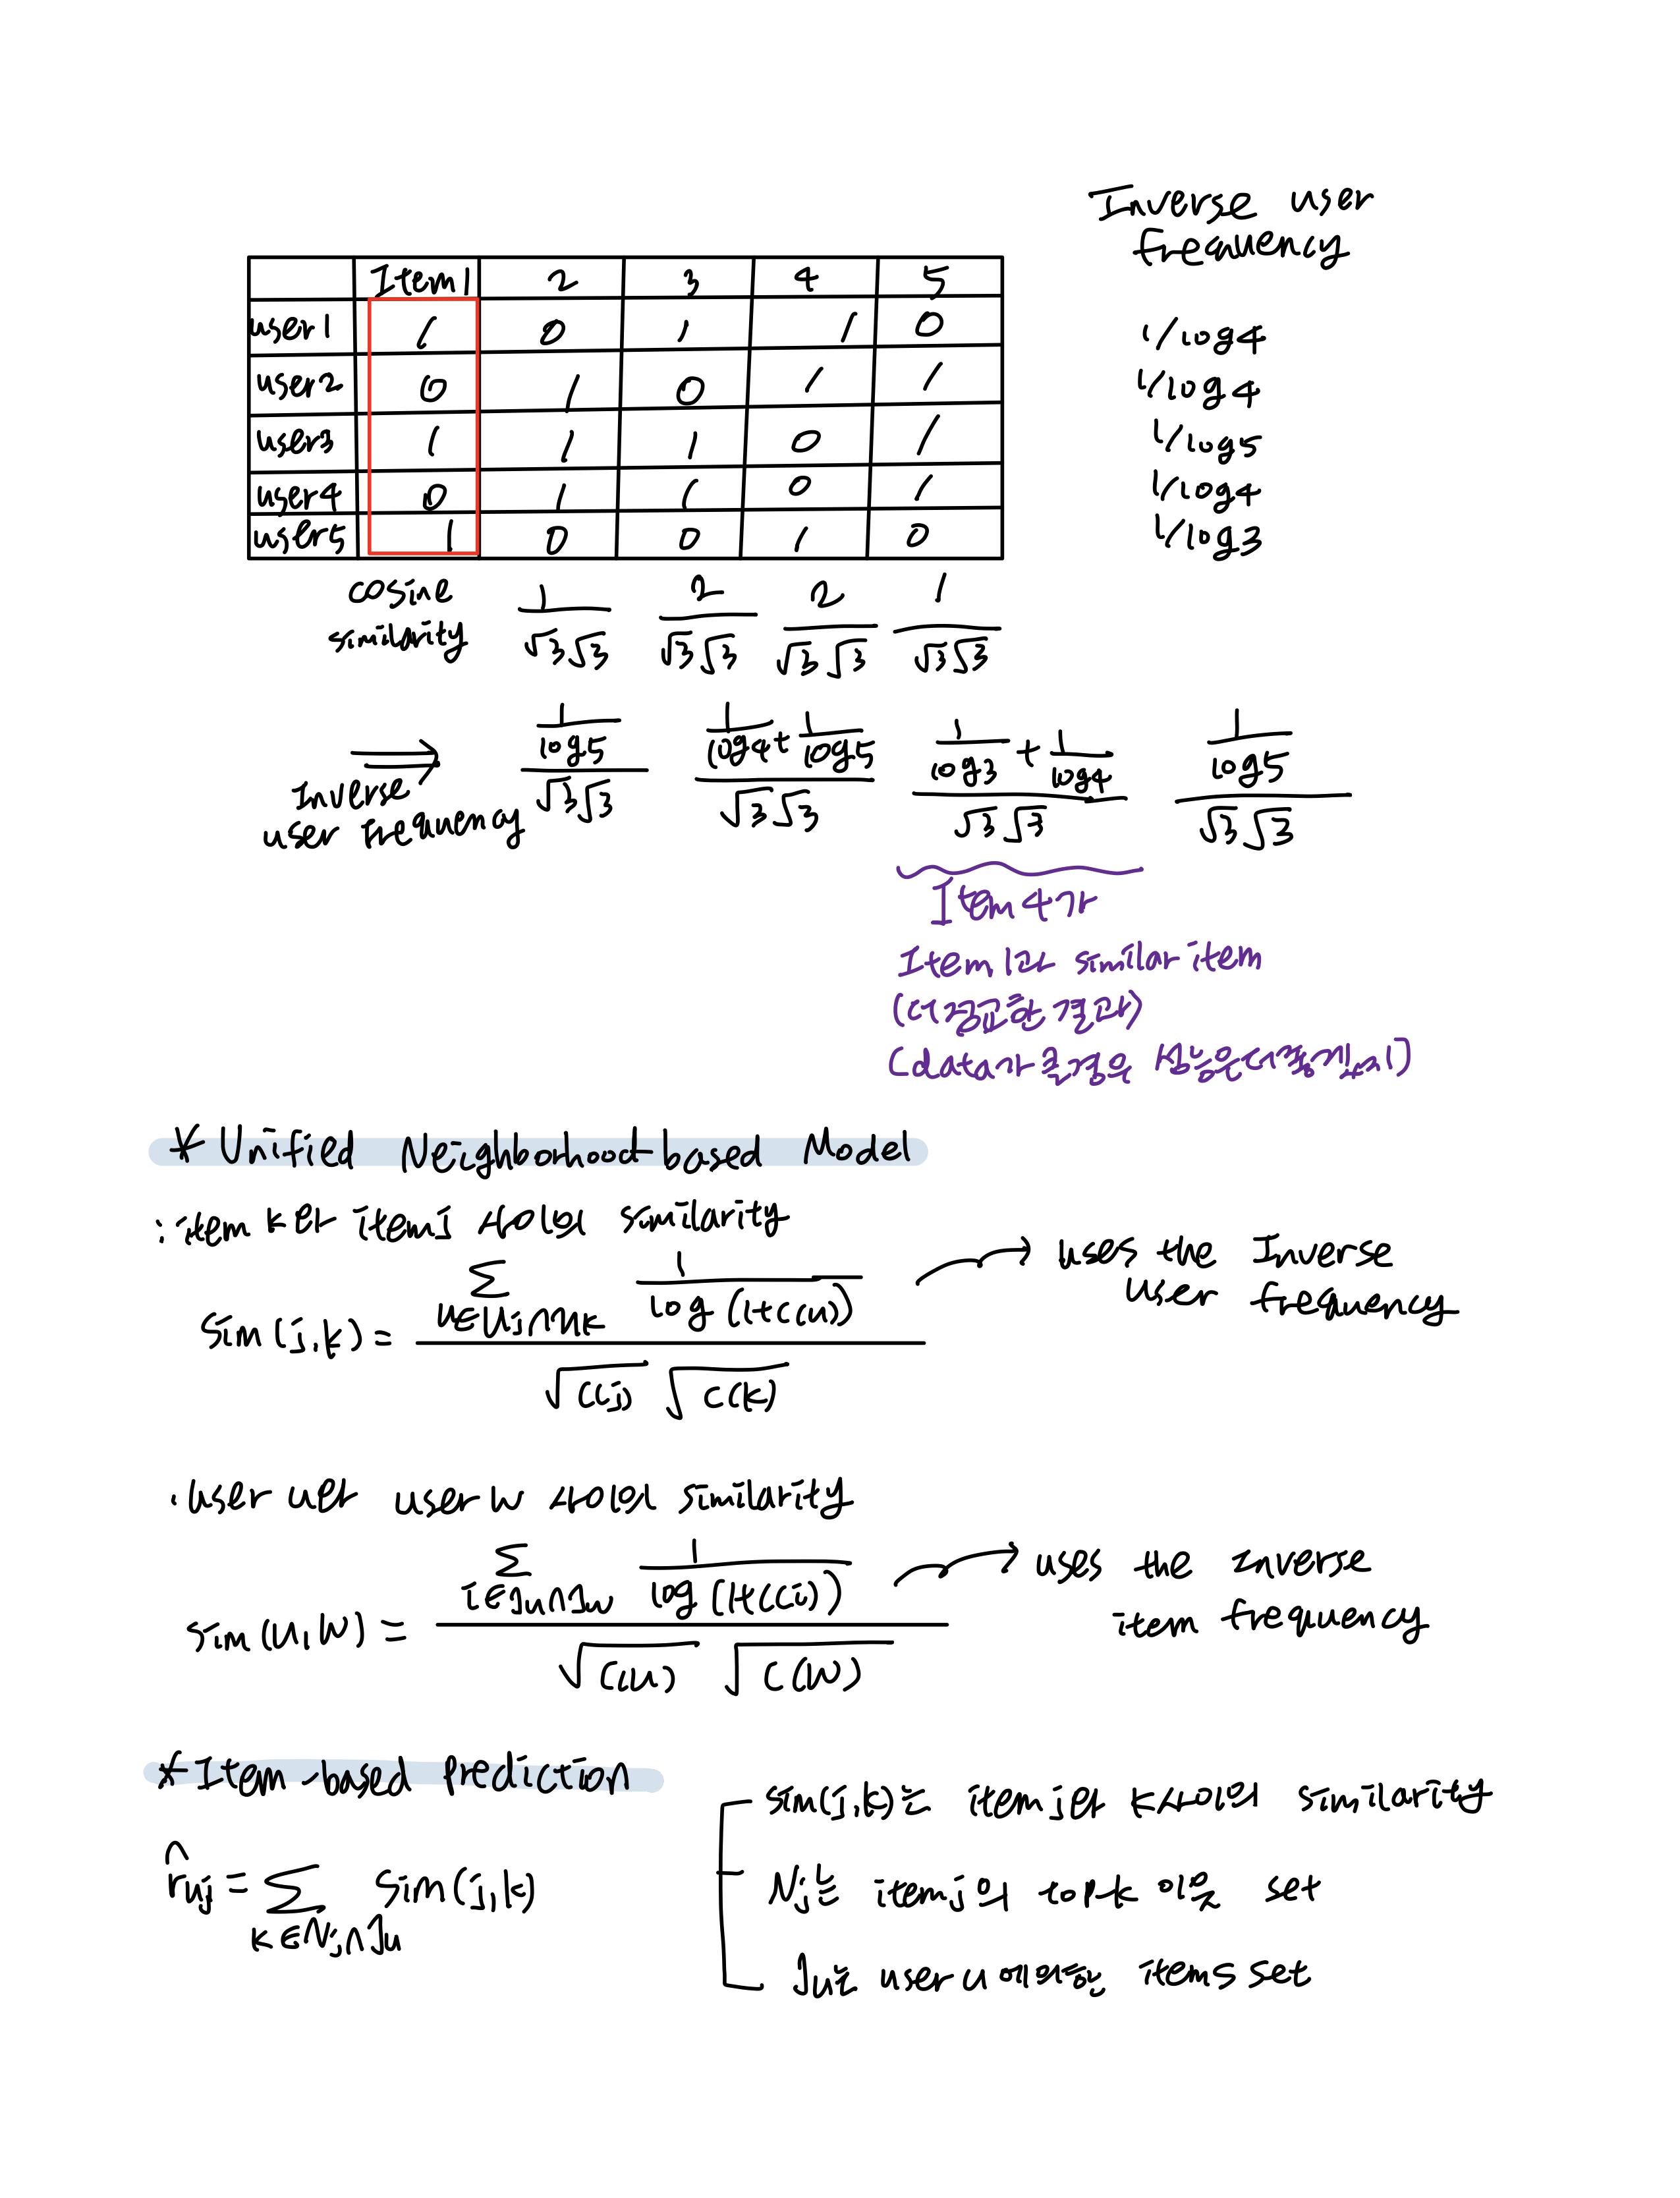 Inverse user
frequency
Item1 2 3 4 5
user1 1 0 1 1 0 1/log4
user2 0 1 0 1 1 1/log4
user3 1 1 1 0 1 1/log5
user4 0 1 1 0 1 1/log4
user5 1 0 0 1 0 1/log3
cosine
similarity
1/√3√3 2/√3√3 2/√3√3 1/√3√3
⇒
Inverse
user frequency
(1/log5)/√3√3 (1/log4+1/log5)/√3√3 (1/log3+1/log4)/√3√3 (1/log5)/√3√3
Item 4가
Item 1과 similar item
(더 정교한 결과)
(data가 클 경우 성능은 더 좋겠지)
* Unified Neighborhood-based Model
: item k와 item j 사이의 similarity
sim(j,k) = Σ u∈Uj∩Uk 1/log(1+c(u)) / √c(j) √c(k) → uses the Inverse
user frequency
· user u와 user w 사이의 similarity
sim(u,w) = Σ i∈Ju∩Jw 1/log(1+c(i)) / √c(u) √c(w) → uses the inverse
item frequency
* Item-based prediction
r̂uj = Σ k∈Nj∩Ju sim(j,k)
sim(j,k)는 item j와 k사이의 similarity
Nj는 item j의 top-k 이웃 set
Ju는 user u에 의한 items set